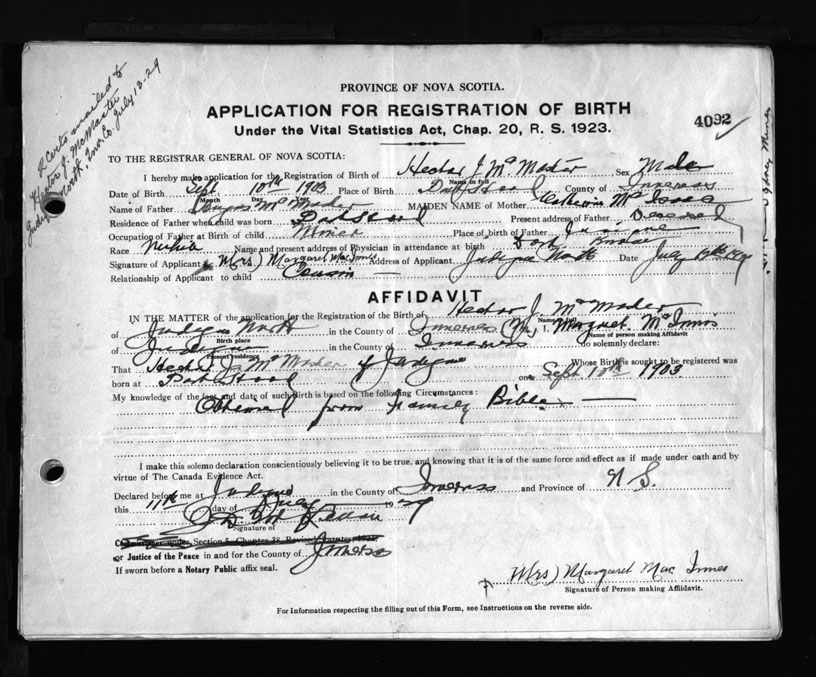 PROVINCE OF NOVA SCOTIA.
APPLICATION FOR REGISTRATION OF BIRTH
Under the Vital Statistics Act, Chap. 20, R. S. 1923.
4092
2 Certs mailed to
Hector J. McMaster
Judique North, Inv. Co. July 13-29
TO THE REGISTRAR GENERAL OF NOVA SCOTIA:
I hereby make application for the Registration of Birth of Hector J McMaster Sex Male
Name in full
Date of Birth Sept 10th 1903 Place of Birth Port Hood County of Inverness
Month Day
Name of Father Angus McMaster MAIDEN NAME of Mother Catherine McIsaac
Residence of Father when child was born Port Hood Present address of Father Deceased
Occupation of Father at Birth of child Miner Place of birth of Father Judique
Race Name and present address of Physician in attendance at birth
Signature of Applicant (Mrs) Margaret MacInnes Address of Applicant Judique North Date July
Relationship of Applicant to child Cousin
AFFIDAVIT
IN THE MATTER of the application for the Registration of the Birth of Hector J. McMaster
Name in full
of Judique North in the County of Inverness I, Margaret McInnis
Birth place Name of person making Affidavit
of Judique in the County of Inverness do solemnly declare:
Present residence
That Hector J. McMaster of Judique Whose Birth is sought to be registered was
born at Port Hood on Sept 10th 1903
My knowledge of the fact and date of such Birth is based on the following Circumstances:
Obtained from Family Bible
I make this solemn declaration conscientiously believing it to be true, and knowing that it is of the same force and effect as if made under oath and by
virtue of The Canada Evidence Act.
Declared before me at Judique in the County of Inverness and Province of N. S.
this 11th day of July 1929
Signature of
or Justice of the Peace in and for the County of Inverness
If sworn before a Notary Public affix seal.
(Mrs) Margaret Mac Innes
Signature of Person making Affidavit.
For Information respecting the filling out of this Form, see Instructions on the reverse side.